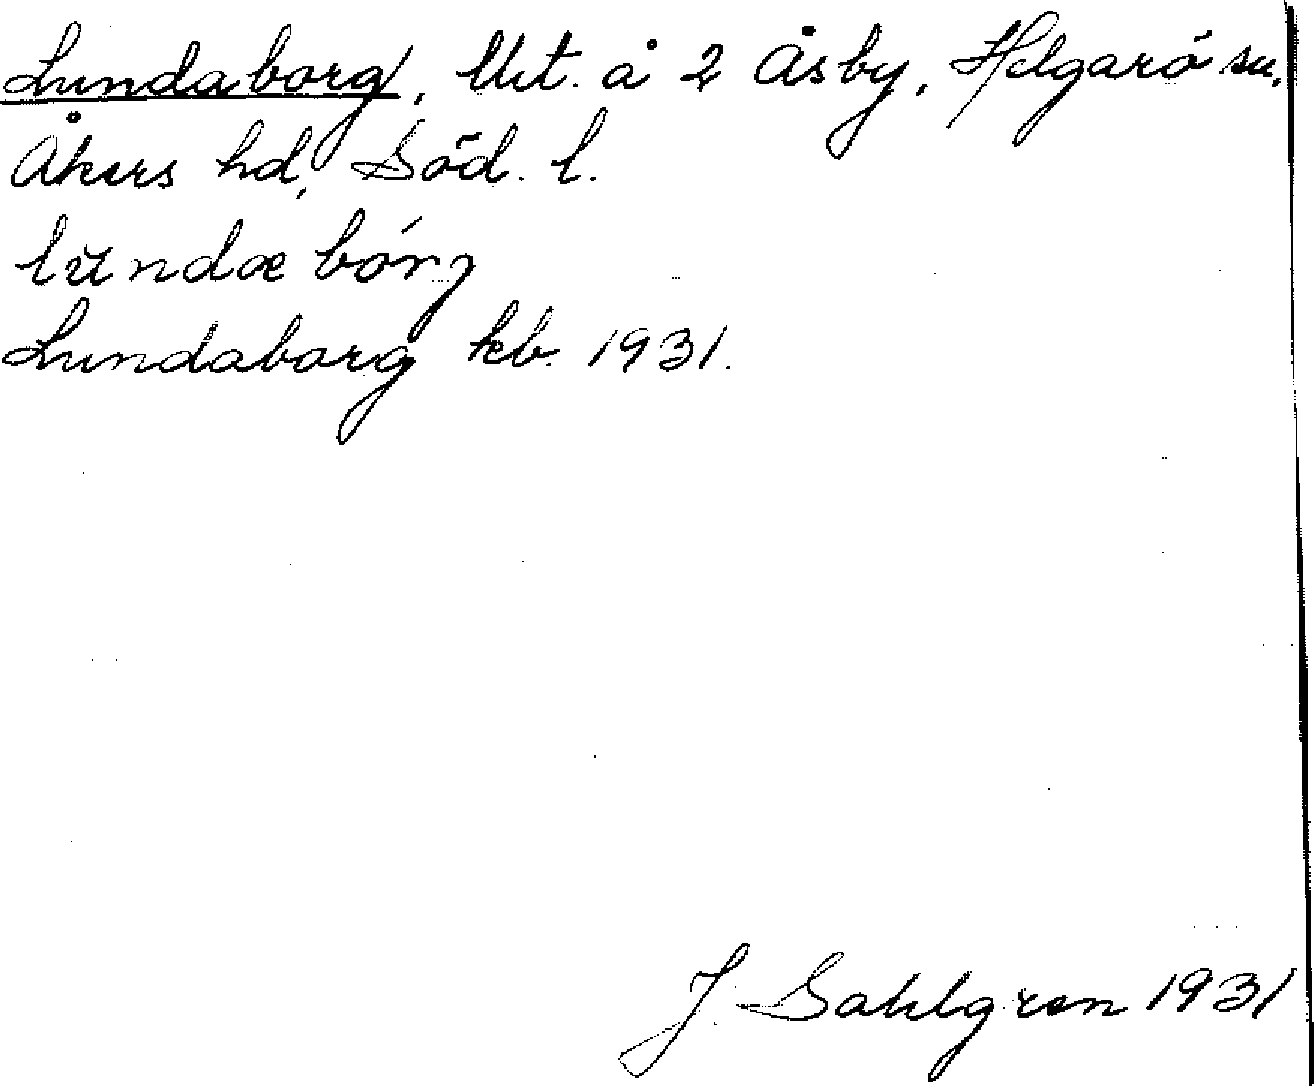 Lundaborg, Utt. å 2 Åsby, Helgarö sn.
Åkers hd, Söd. l.
lŭndæ bórg
Lundaborg kb. 1931.
J. Sahlgren 1931